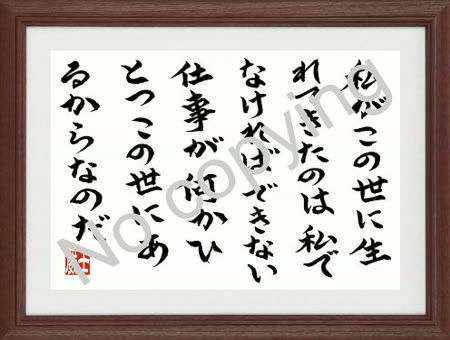 私がこの世に生
れてきたのは私で
なければできない
仕事が何かひ
とつこの世にあ
るからなのだ
No copying